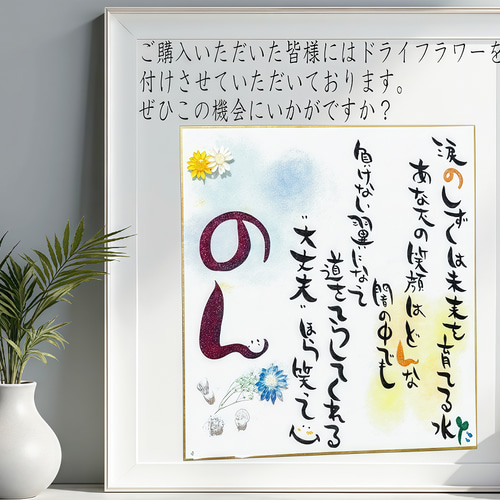 ご購入いただいた皆様にはドライフラワーを
付けさせていただいております。
ぜひこの機会にいかがですか？
涙のしずくは未来を育てる水だ
あなたの笑顔はどんな
闇の中でも
負けない翼になって
道をてらしてくれる
"大丈夫"ほら笑って
のん